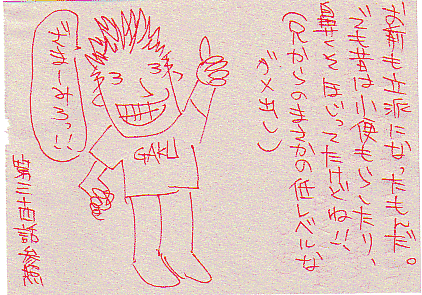 お前も立派になったもんだ。
でも昔は小便もらしたり、
鼻くそほじってたけどね!!
(兄からのまさかの低レベルな
ダメ出し)
GAKU
ざまーみろっ!!
話参照